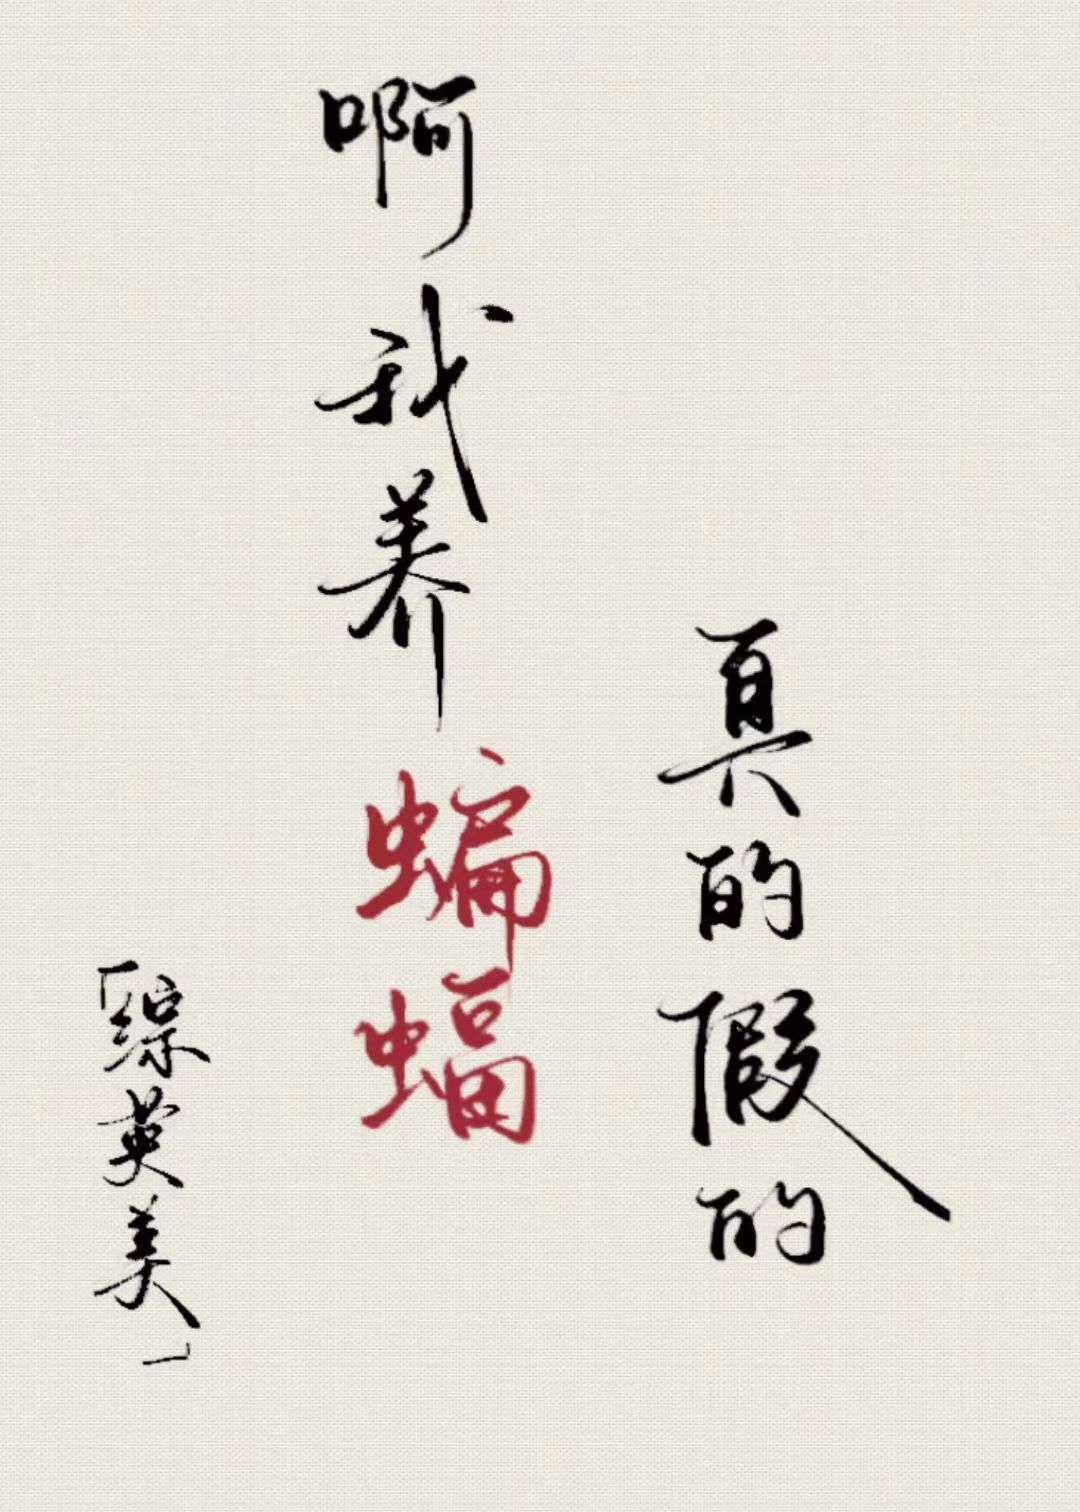 真的假的
啊我养蝙蝠
「综英美」